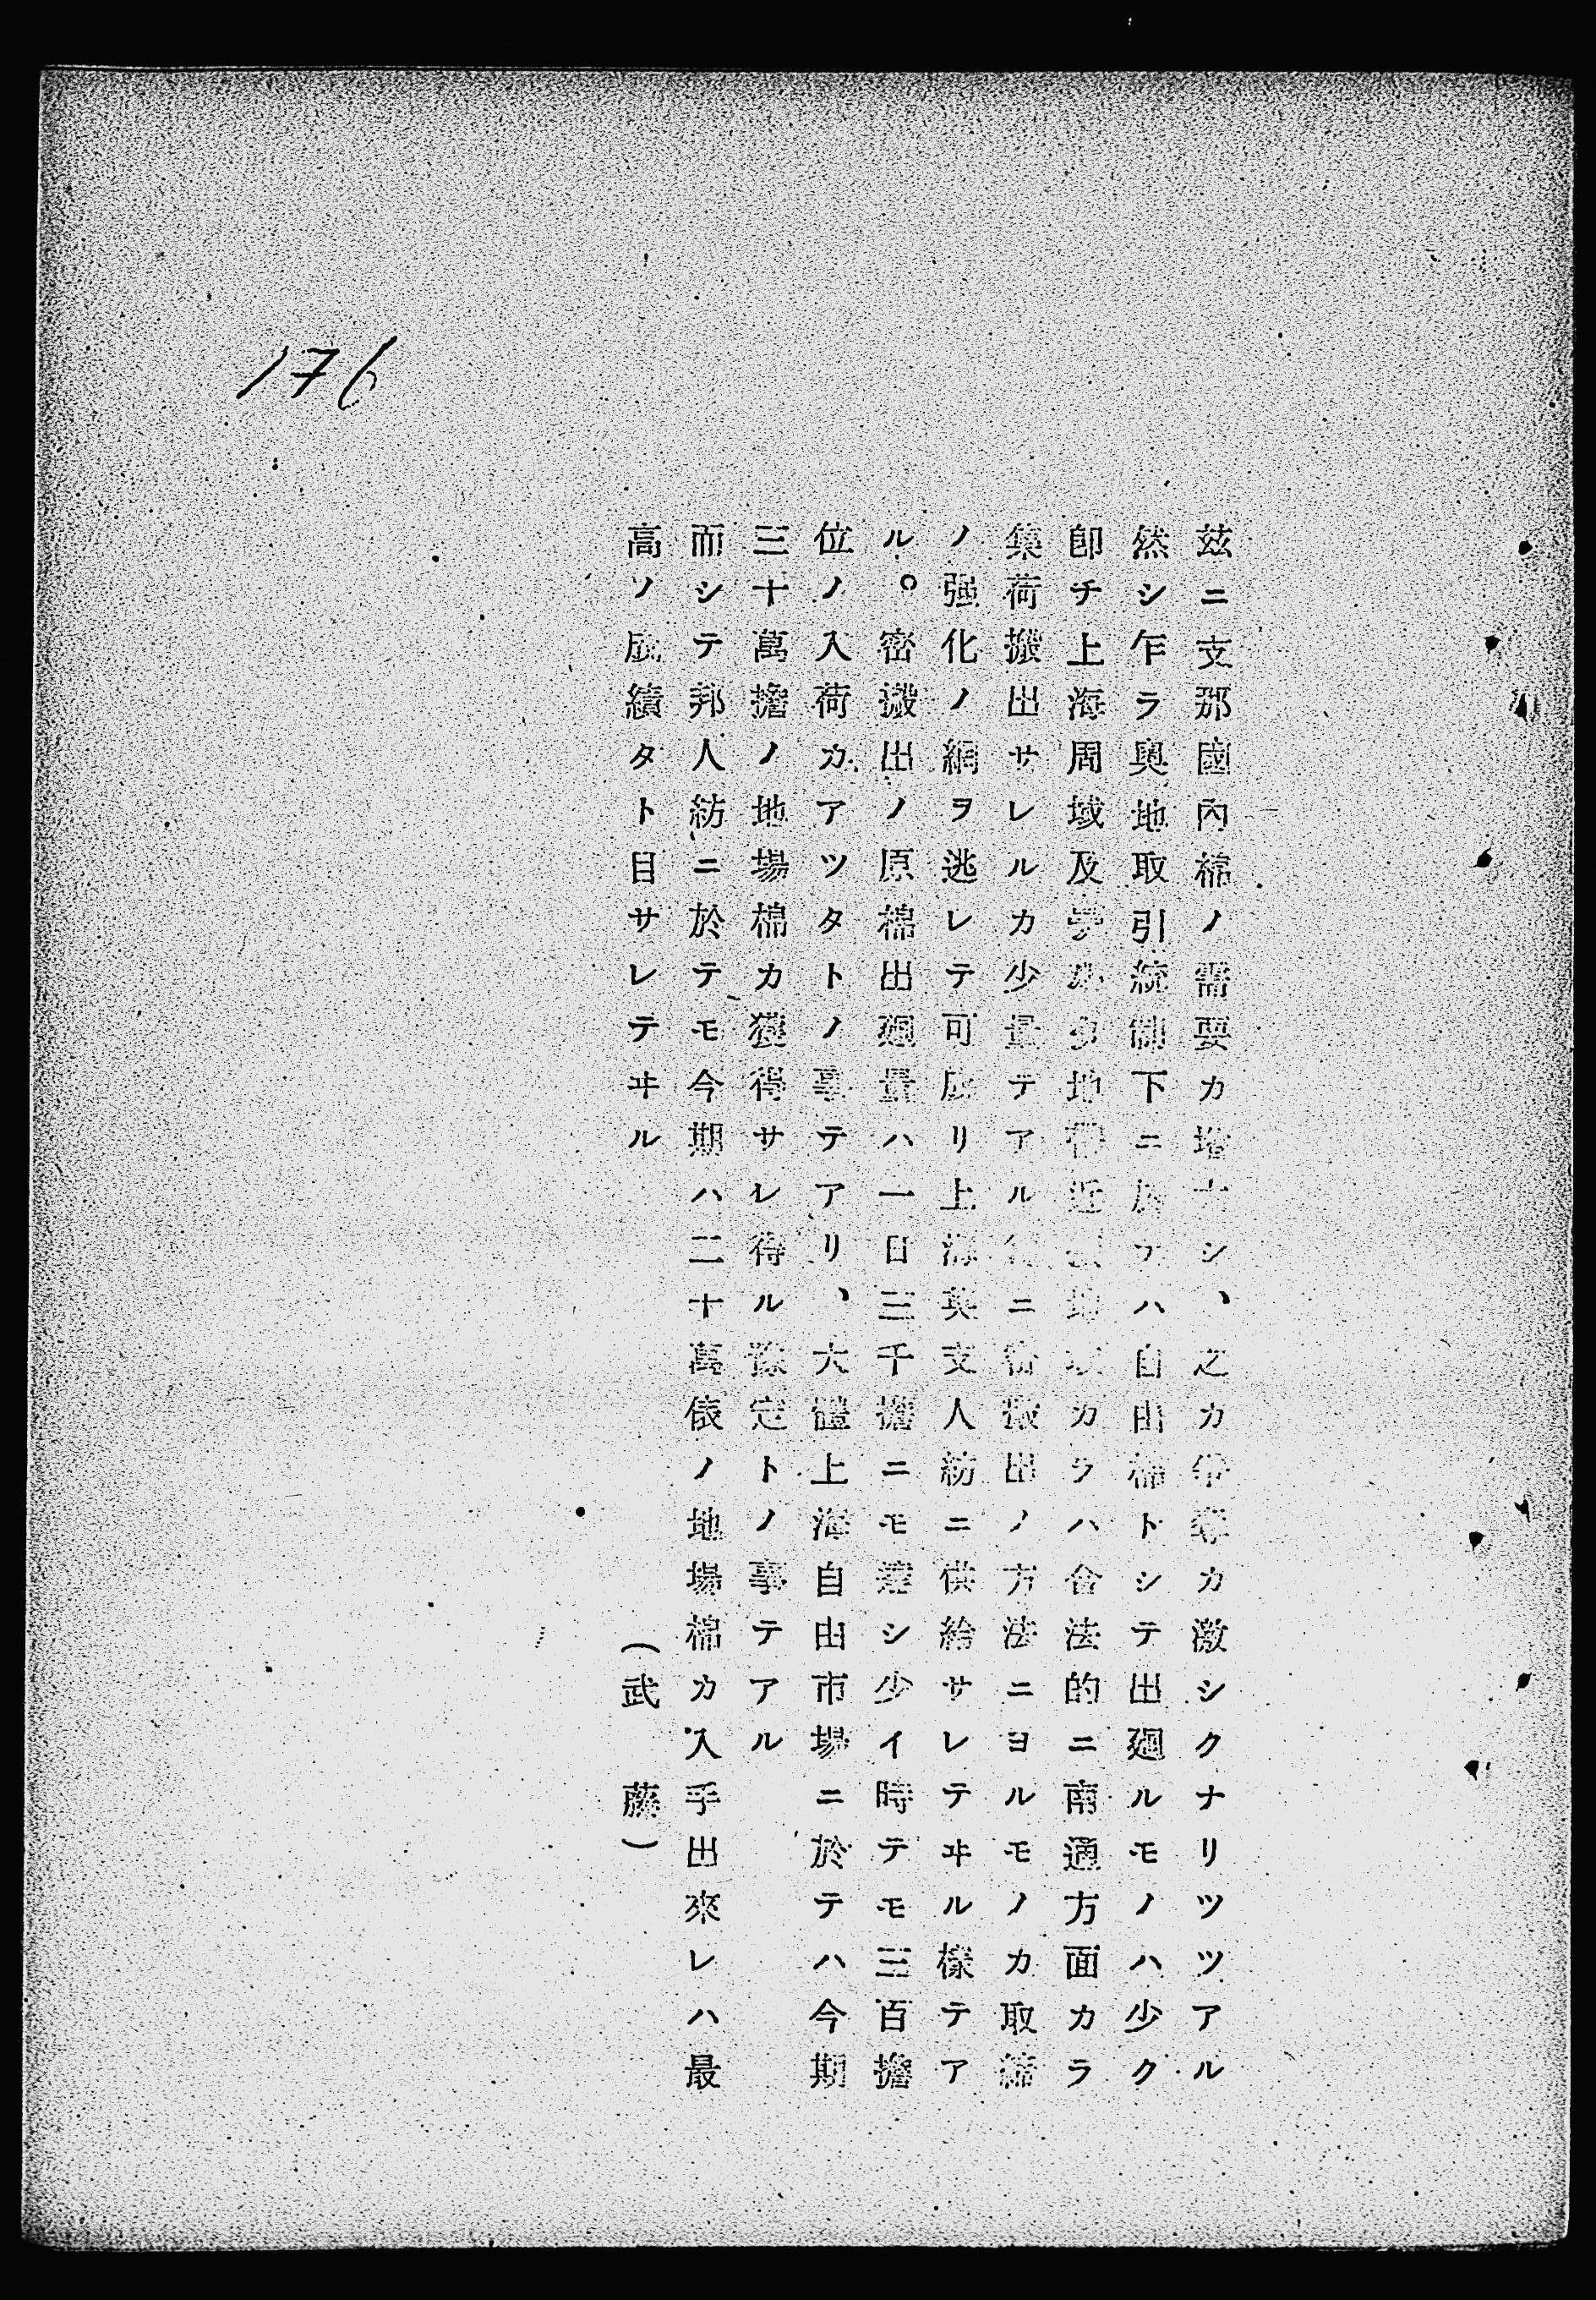 176
茲ニ支那國內棉ノ需要カ增大シ、之カ爭奪カ激シクナリツツアル
然シ乍ラ奧地取引統制下ニ於テハ自由棉トシテ出廻ルモノハ少ク
卽チ上海周域及 地帶 カラハ合法的ニ南通方面カラ
集荷搬出サレルカ少量テアル ニ密搬出ノ方法ニヨルモノカ取締
ノ强化ノ網ヲ逃レテ可成リ上海英支人紡ニ供給サレテヰル樣テア
ル。密搬出ノ原棉出廻量ハ一日三千擔ニモ達シ少イ時テモ三百擔
位ノ入荷カアツタトノ事テアリ、大體上海自由市場ニ於テハ今期
三十萬擔ノ地場棉カ獲得サレ得ル豫定トノ事テアル
而シテ邦人紡ニ於テモ今期ハ二十萬俵ノ地場棉カ入手出來レハ最
高ノ成績タト目サレテヰル
（武藤）